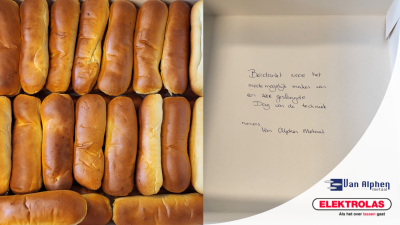 Bedankt voor het
mede mogelijk maken van
een zeer geslaagde
Dag van de techniek
namens
Van Alphen Metaal
Van Alphen
Metaal
ELEKTROLAS
Als het over lassen gaat